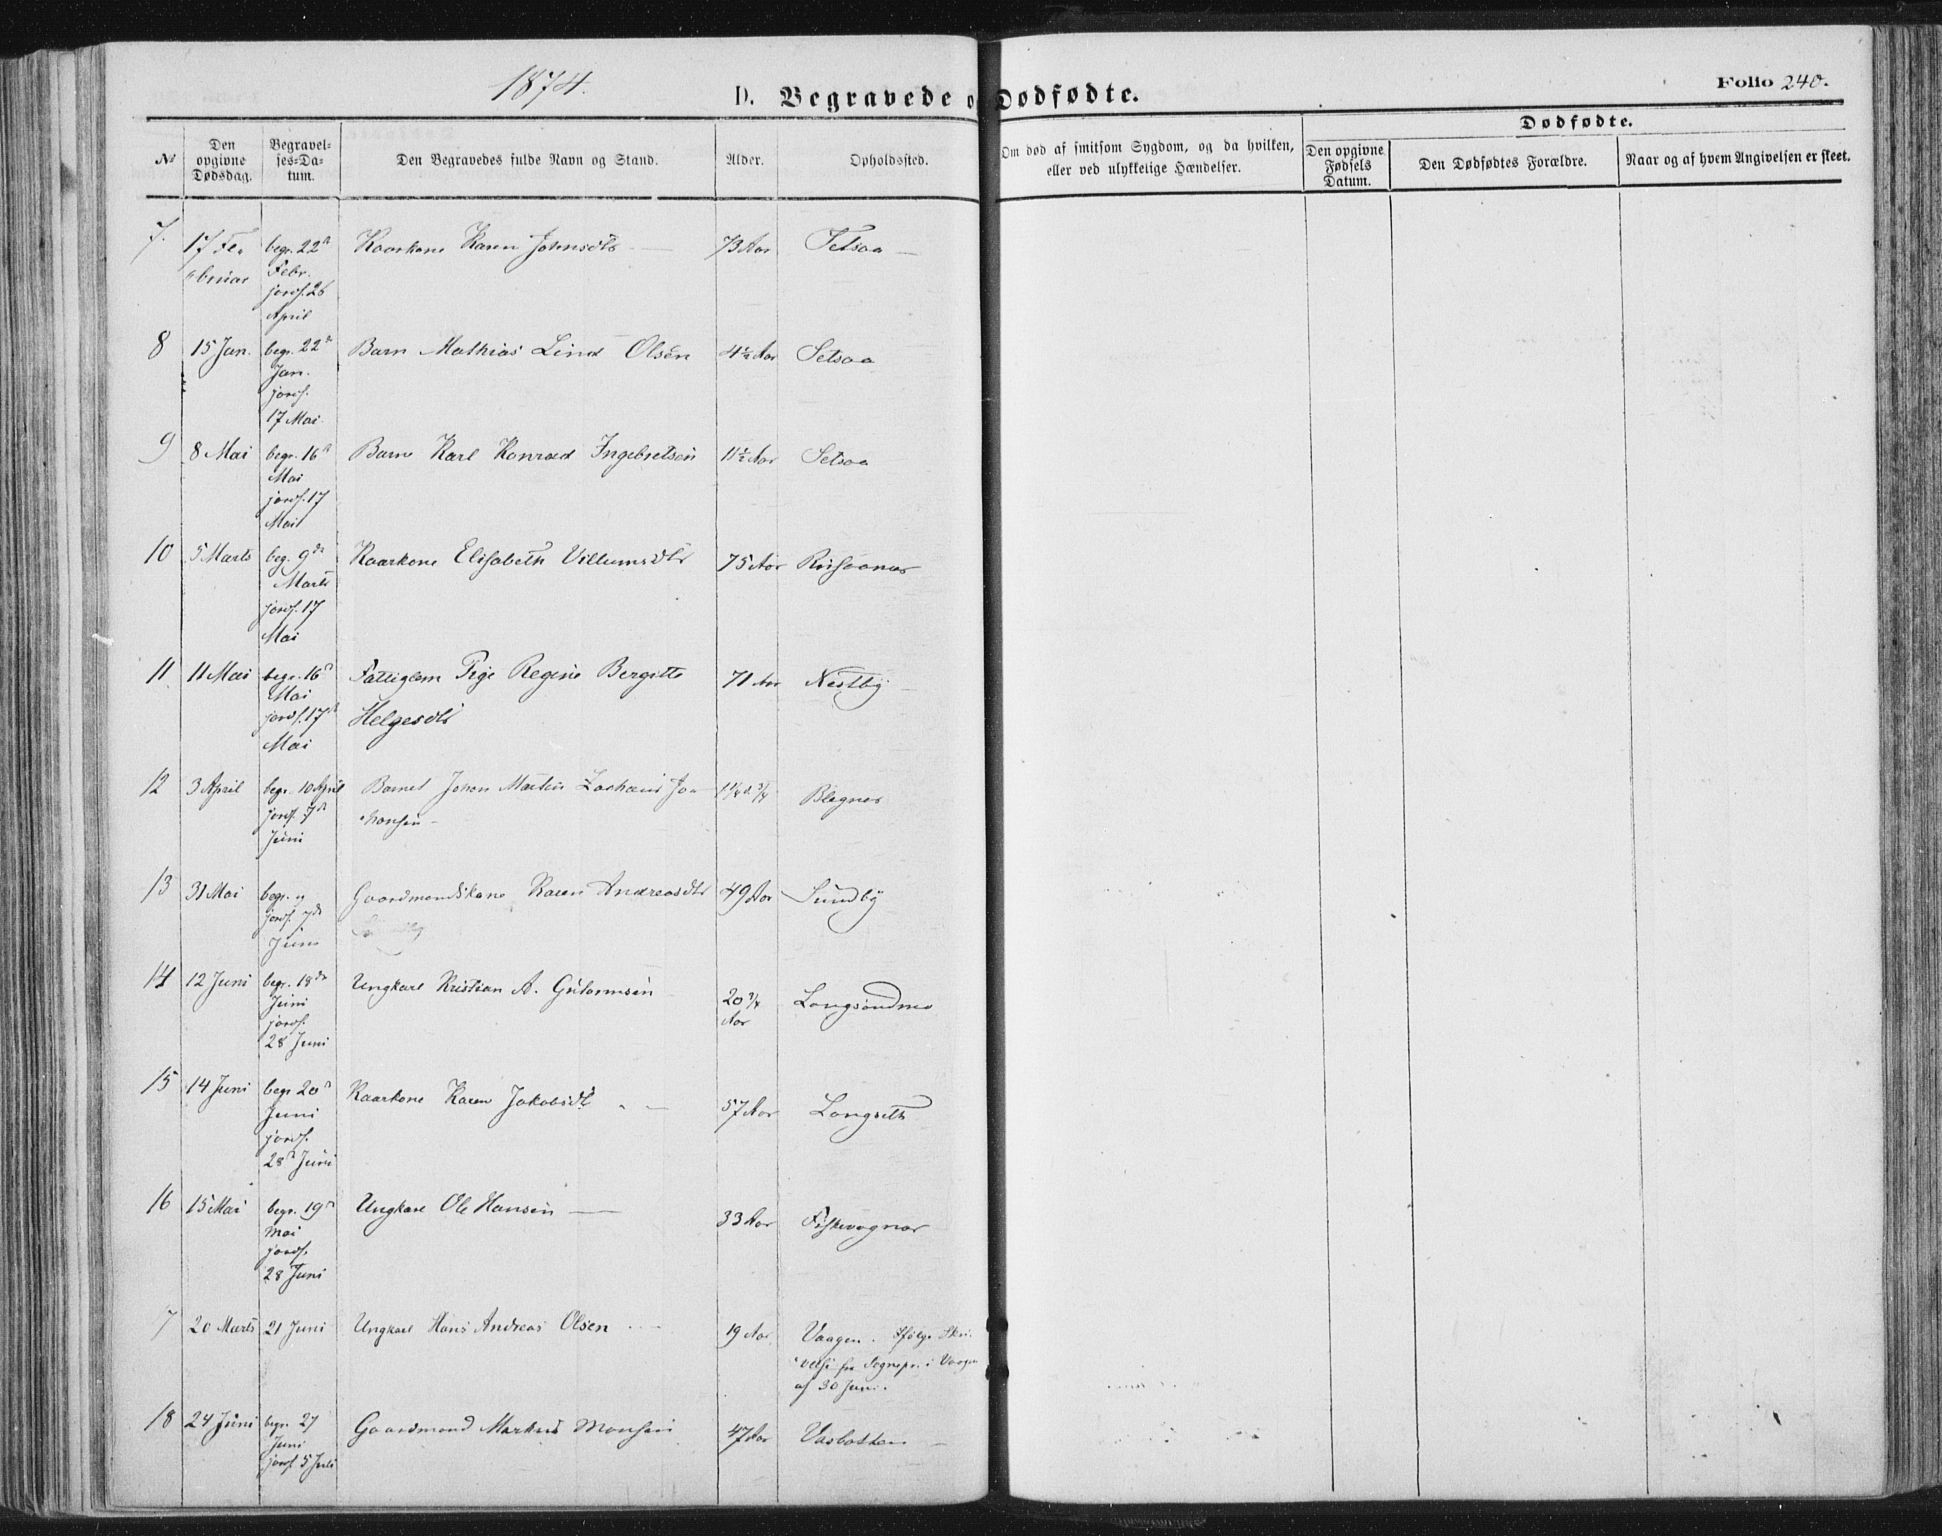 1874.
D. Begravede o Dødfødte.
Folio 240.
No
Den opgivne Dødsdag.
Begravel-ses-Da-tum.
Den Begravedes fulde Navn og Stand.
Alder.
Opholdssted.
Om død af smitsom Sygdom, og da hvilken, eller ved ulykkelige Hændelser.
Dødfødte.
Den opgivne Fødsels Datum.
Den Dødfødtes Forældre.
Naar og af hvem Angivelsen er skeet.
7. 17 Fe- Kaarkone Karen Johnsdtr 73 Aar Setsaa
bruar
begr. 22
Febr.
jordf. 26
April
8 15 Jan. begr. 22 Barn Mathias Lind Olsen 4½ Aar Setsaa
Jan.
jordf.
17 Mai
9 8 Mai begr. 16 Barn Karl Konrad Ingebretsen 11½ Aar Setsaa
Mai
jordf. 17
Mai
10 5 Marts beg. 9de Kaarkone Elisabeth Villumsdtr 75 Aar
Marts
jordf. 17
Mai
11 11 Mai begr. 16 Fattiglem Pige Regine Bergitte 71 Aar Nestby
Mai
jordf. 17
Mai
Helgesdtr
12 3 April begr. 10 April Barnet Johan Martin Zachari Jo-
hansen
jordf. 7de
Juni
13 31 Mai begr. og Gaardmandskone Karen Andreasdtr 49 Aar Sundby
jordf. 7de
Juni
14 12 Juni begr. 18de Ungkarl Kristian A. Guttormsen 20 ¾ Longsandmo
Aar
Juni
jordf.
28 Juni
15 14 Juni begr 20 Kaarkone Karen Jakobsdtr 57 Aar Longseth
Juni
jordf.
28 Juni
16 15 Mai begr. 19 Ungkarl Ole Hansen 33 Aar Fiskevagnar
Mai
jordf.
28 Juni
7 20 Marts 21 Juni Ungkarl Hans Andreas Olsen 19 Aar Vaagen. Ifølge Skri-
velse fra Sognepr. i Vaagen
af 30 Juni.
18 24 Juni begr. 27 Gaardmand Markus Monsen 47 Aar Vasbotten
Juni
jordf 5 Juli